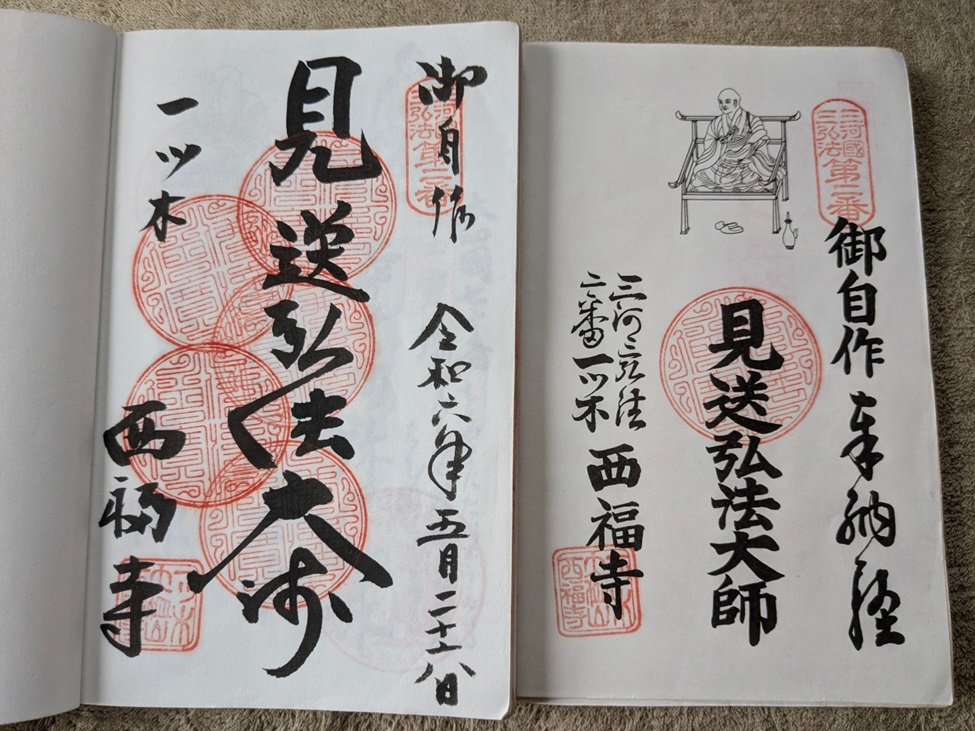 三河
弘法
第二番
御自作
令和六年五月二十八日
見送弘法大師
一ツ木
西福寺
三河國
弘法
第二番
御自作奉納経
見送弘法大師
三河三弘法
二番一ツ木西福寺
西福寺